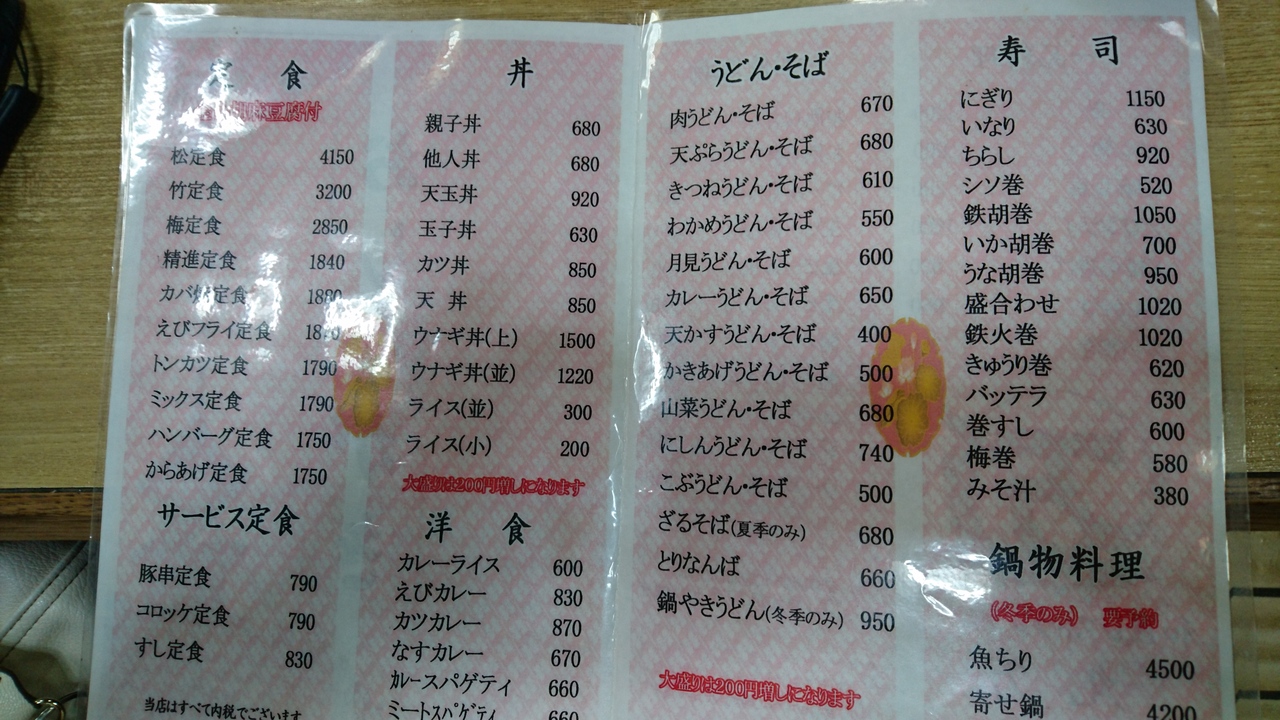 定 食
胡麻豆腐付
松定食 4150
竹定食 3200
梅定食 2850
精進定食 1840
定食 1880
えびフライ定食
トンカツ定食 1790
ミックス定食 1790
ハンバーグ定食 1750
からあげ定食 1750
サービス定食
豚串定食 790
コロッケ定食 790
すし定食 830
当店はすべて内税でございます
丼
親子丼 680
他人丼 680
天玉丼 920
玉子丼 630
カツ丼 850
天 丼 850
ウナギ丼(上) 1500
ウナギ丼(並) 1220
ライス(並) 300
ライス(小) 200
大盛りは200円増しになります
洋 食
カレーライス 600
えびカレー 830
カツカレー 870
なすカレー 670
カレースパゲティ 660
ミートスパゲティ 660
うどん・そば
肉うどん・そば 670
天ぷらうどん・そば 680
きつねうどん・そば 610
わかめうどん・そば 550
月見うどん・そば 600
カレーうどん・そば 650
天かすうどん・そば 400
かきあげうどん・そば 500
山菜うどん・そば 680
にしんうどん・そば 740
こぶうどん・そば 500
ざるそば(夏季のみ) 680
とりなんば 660
鍋やきうどん(冬季のみ) 950
大盛りは200円増しになります
寿 司
にぎり 1150
いなり 630
ちらし 920
シソ巻 520
鉄胡巻 1050
いか胡巻 700
うな胡巻 950
盛合わせ 1020
鉄火巻 1020
きゅうり巻 620
バッテラ 630
巻すし 600
梅巻 580
みそ汁 380
鍋物料理
(冬季のみ) 要予約
魚ちり 4500
寄せ鍋 4200